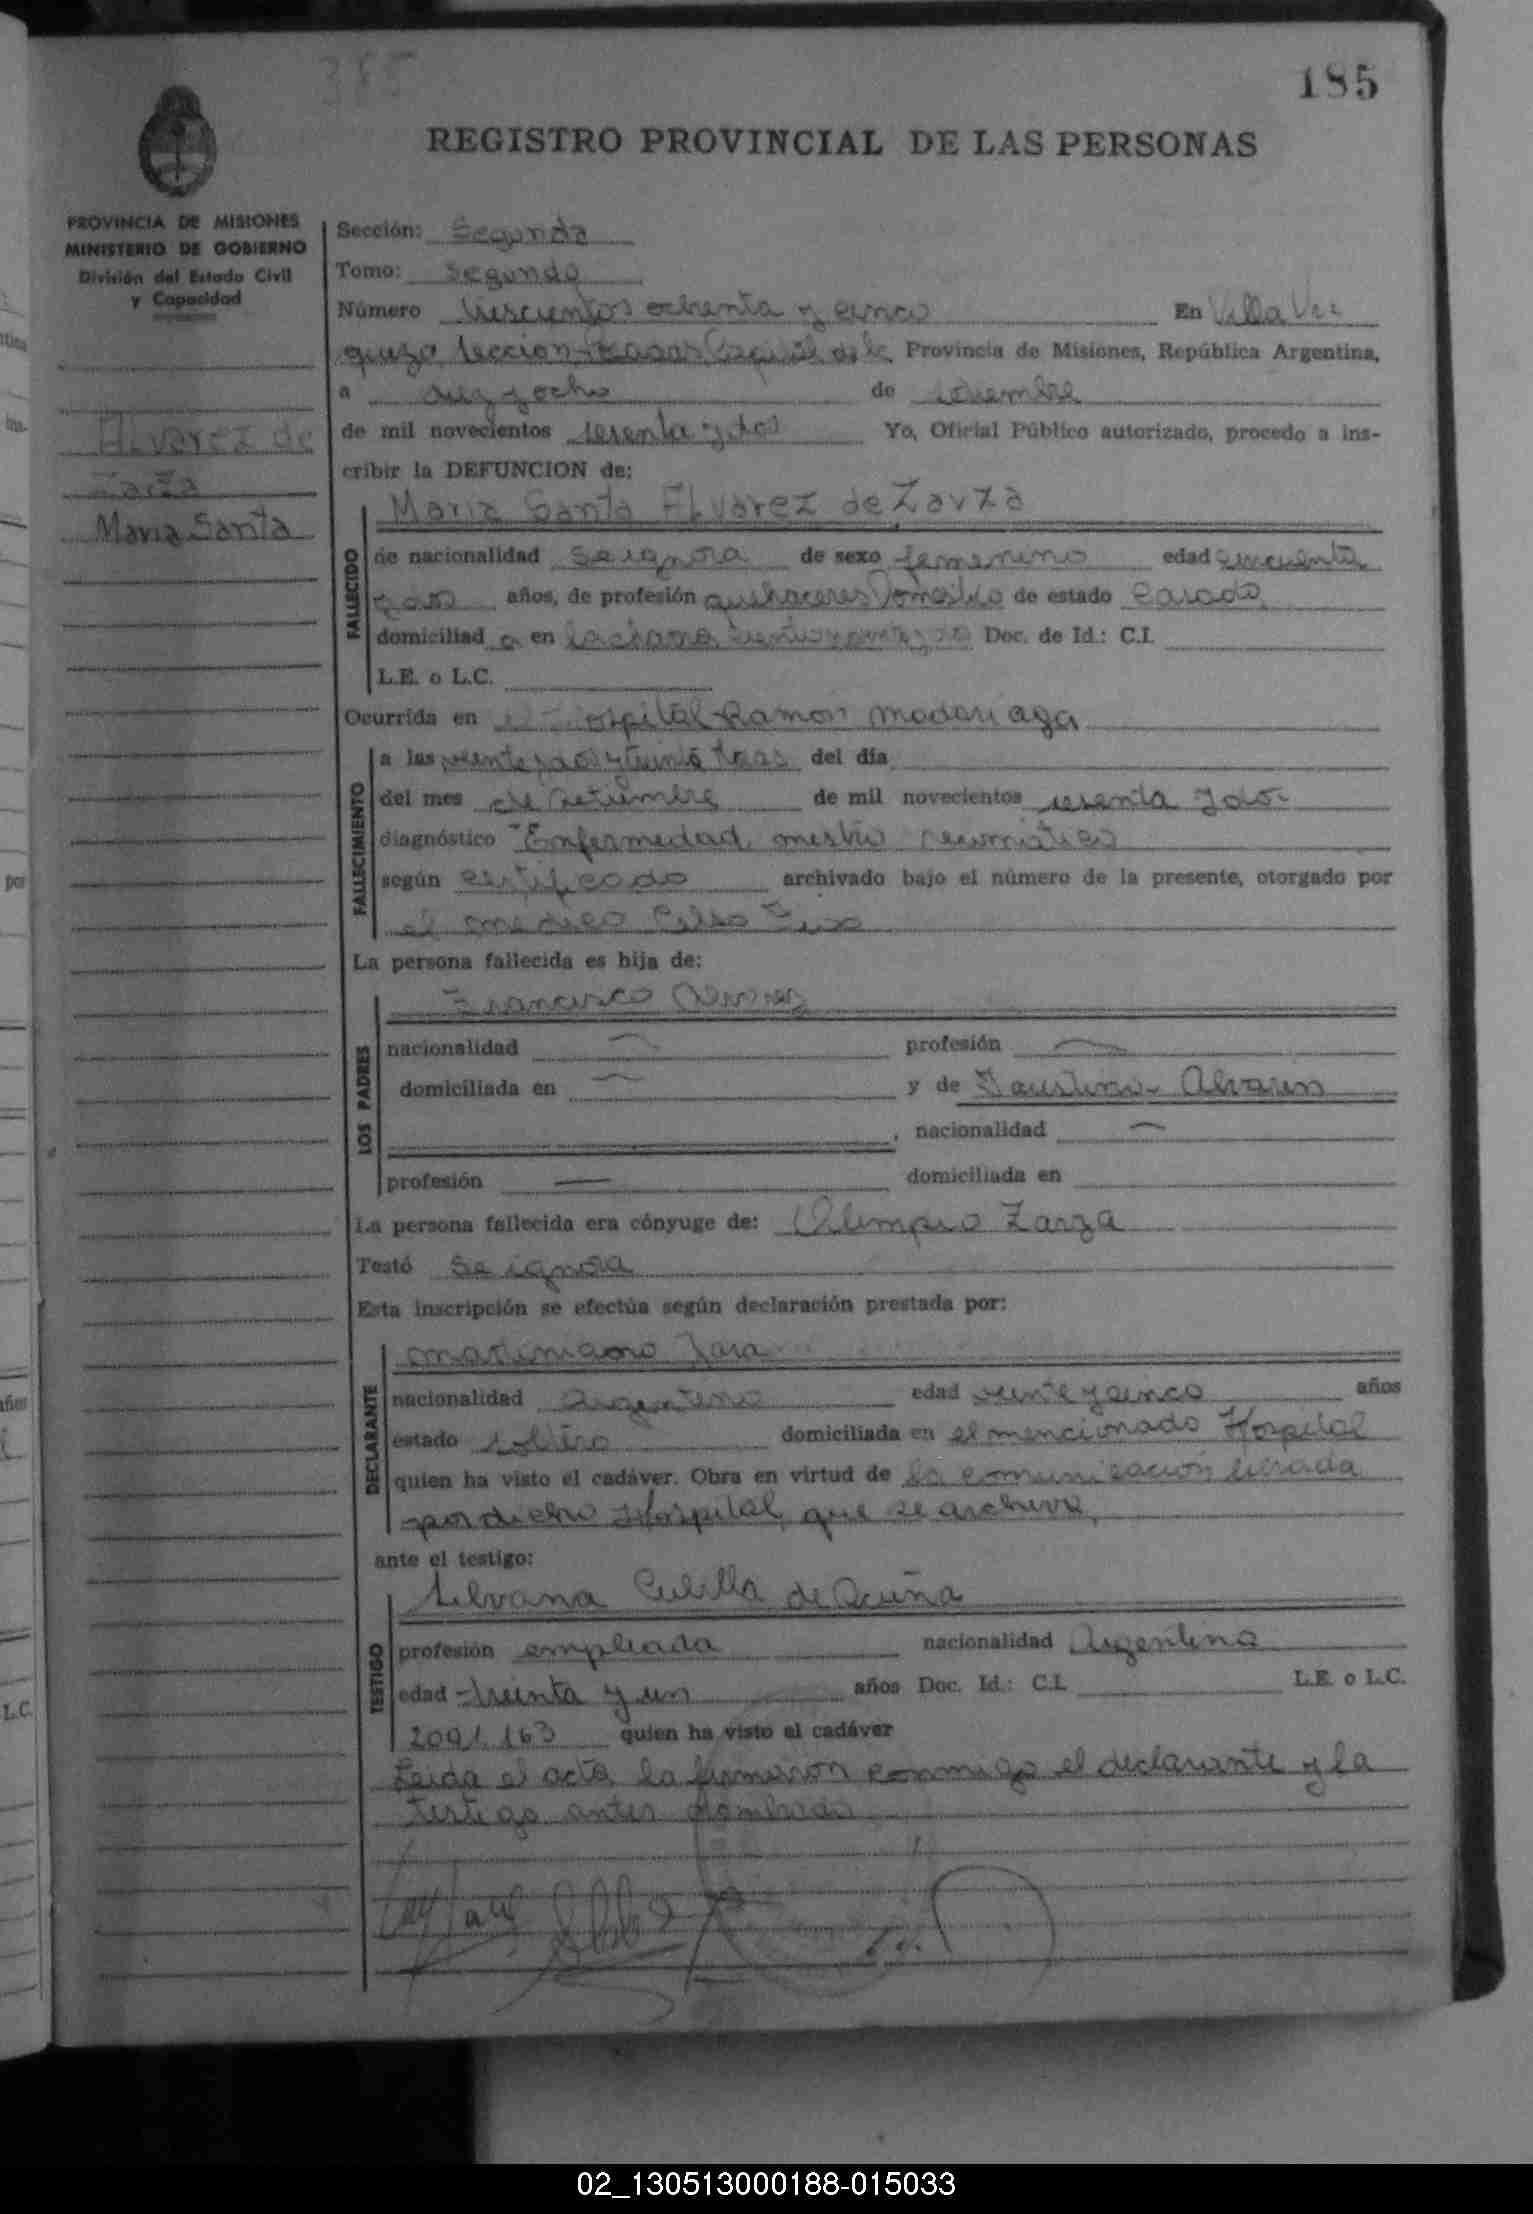 385
185
REGISTRO PROVINCIAL DE LAS PERSONAS
PROVINCIA DE MISIONES
MINISTERIO DE GOBIERNO
División del Estado Civil
y Capacidad
Alvarez de
Zarza
Maria Santa
Sección: Segunda
Tomo: Segundo
Número trescientos ochenta y cinco En Villa
Provincia de Misiones, República Argentina,
a diez y ocho de
de mil novecientos sesenta y dos Yo, Oficial Público autorizado, procedo a ins-
cribir la DEFUNCION de:
Maria Santa Alvarez de Zarza
FALLECIDO
de nacionalidad se ignora de sexo femenino edad cincuenta
y dos años, de profesión quehaceres Domestico de estado Casada
domiciliad a en Doc. de Id.: C.I.
L.E. o L.C.
Ocurrida en el Hospital Ramon Madariaga
FALLECIMIENTO
a las veinte y dos y treinta horas del día
del mes de Setiembre de mil novecientos sesenta y dos
diagnóstico Enfermedad
según certificado archivado bajo el número de la presente, otorgado por
el medico Celso
La persona fallecida es hija de:
LOS PADRES
Francisco Alvarez
nacionalidad — profesión —
domiciliada en — y de
, nacionalidad —
profesión — domiciliada en
La persona fallecida era cónyuge de: Olimpio Zarza
Testó se ignora
Esta inscripción se efectúa según declaración prestada por:
DECLARANTE
Maximiano Jara
nacionalidad argentino edad veinte y cinco años
estado soltero domiciliada en el mencionado Hospital
quien ha visto el cadáver. Obra en virtud de la comunicación librada
por dicho Hospital, que se archiva,
ante el testigo:
TESTIGO
Silvana Cubilla de Acuña
profesión empleada nacionalidad Argentina
edad treinta y un años Doc. Id.: C.I. L.E. o L.C.
2091.163 quien ha visto el cadáver
Leida el acta la firmaron conmigo el declarante y la
testigo antes nombrada
02_130513000188-015033